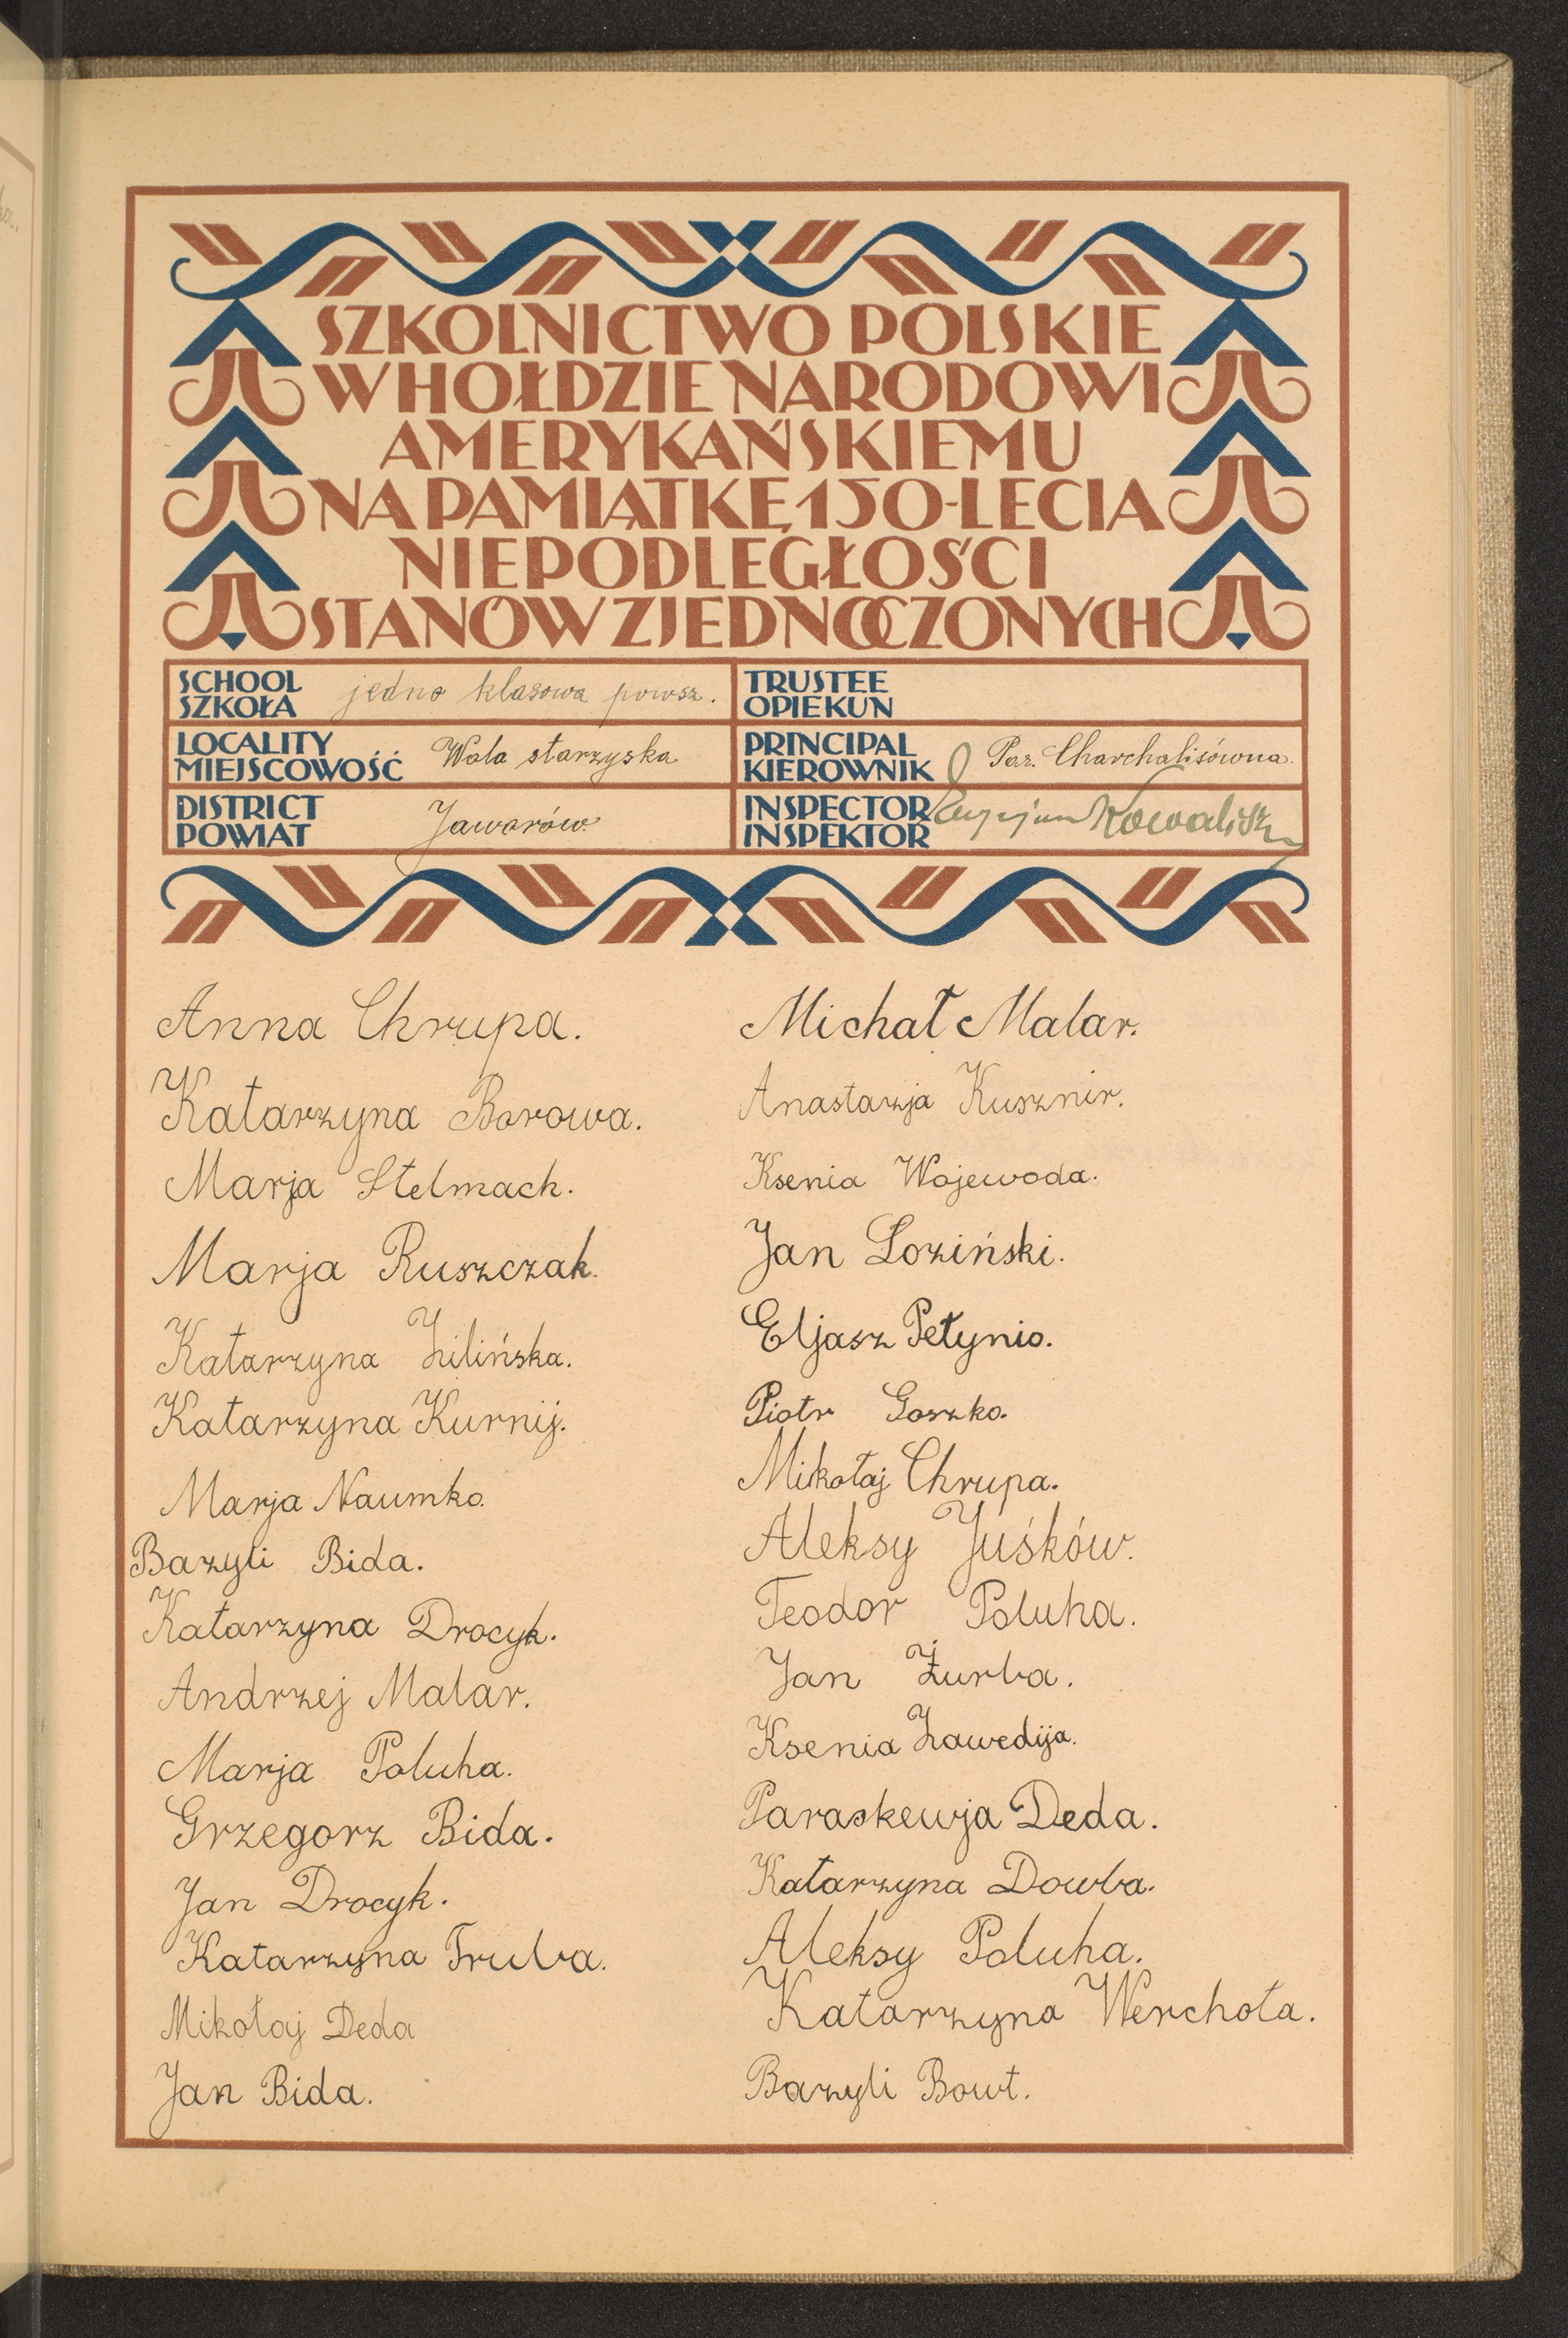 SZKOLNICTWO POLSKIE
W HOŁDZIE NARODOWI
AMERYKAŃSKIEMU
NA PAMIĄTKĘ 150-LECIA
NIEPODLEGŁOŚCI
STANÓW ZJEDNOCZONYCH
SCHOOL
SZKOŁA
jedno klasowa powsz.
TRUSTEE
OPIEKUN
LOCALITY
MIEJSCOWOŚĆ
Wola starzyska
PRINCIPAL
KIEROWNIK
Par. Charchalisówna.
DISTRICT
POWIAT
Jaworów.
INSPECTOR
INSPEKTOR
Anna Chrupa.
Katarzyna Borowa.
Marja Stelmach.
Marja Ruszczak.
Katarzyna Zilińska.
Katarzyna Kurnij.
Marja Naumko.
Bazyli Bida.
Katarzyna Drocyk.
Andrzej Malar.
Marja Poluha.
Grzegorz Bida.
Jan Drocyk.
Katarzyna Truba.
Mikołaj Deda
Jan Bida.
Michał Malar.
Anastazja Kusznir.
Ksenia Wojewoda.
Jan Loziński.
Eljasz Petynio.
Piotr Goszko.
Mikołaj Chrupa.
Aleksy Juśków.
Teodor Poluha.
Jan Żurba.
Ksenia Zawedija.
Paraskewja Deda.
Katarzyna Dowba.
Aleksy Poluha.
Katarzyna Werchoła.
Bazyli Bowt.